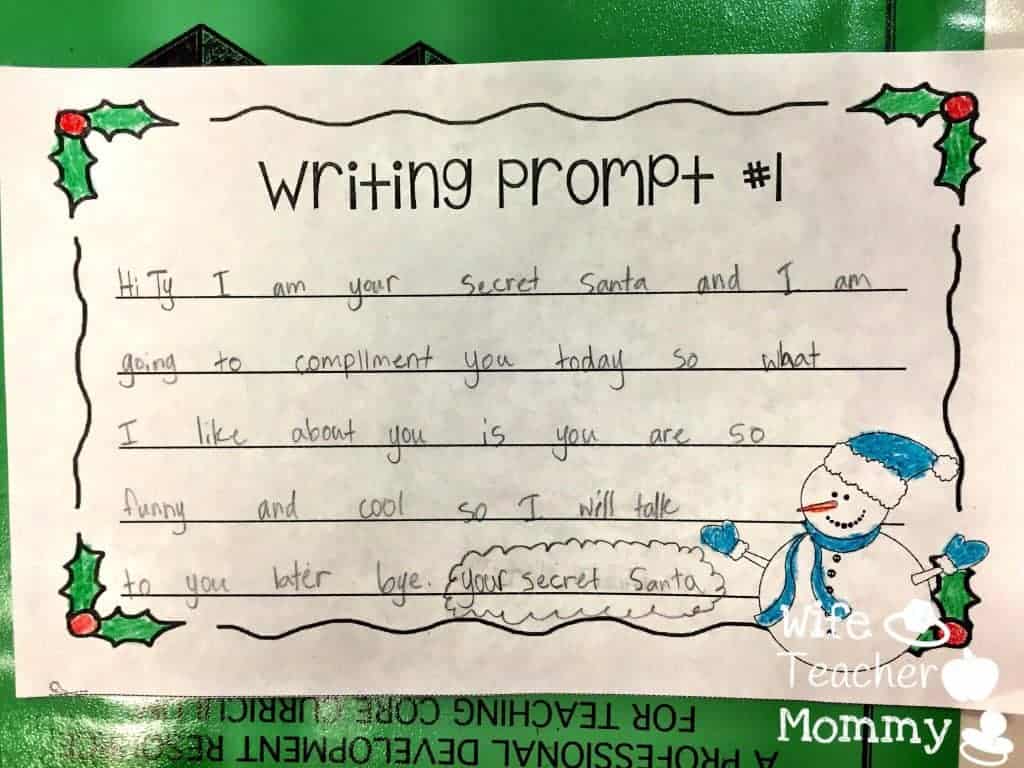 Writing Prompt #1
Hi Ty I am your secret Santa and I am
going to compliment you today so what
I like about you is you are so
funny and cool so I will talk
to you later bye. your secret Santa
Wife
Teacher
Mommy
FOR TEACHING CORE CURRICU
A PROFESSIONAL DEVELOPMENT RESO